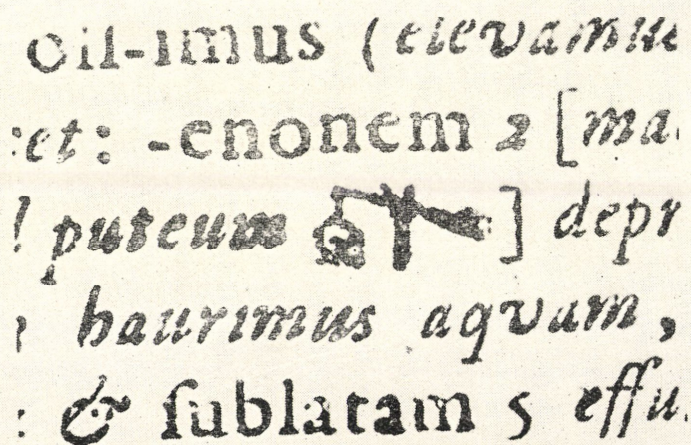 oll-imus (elevamus
:et: -enonem 2 [ma
! puteum ] depr
, haurimus aquam,
: & ſublatam 5 effu